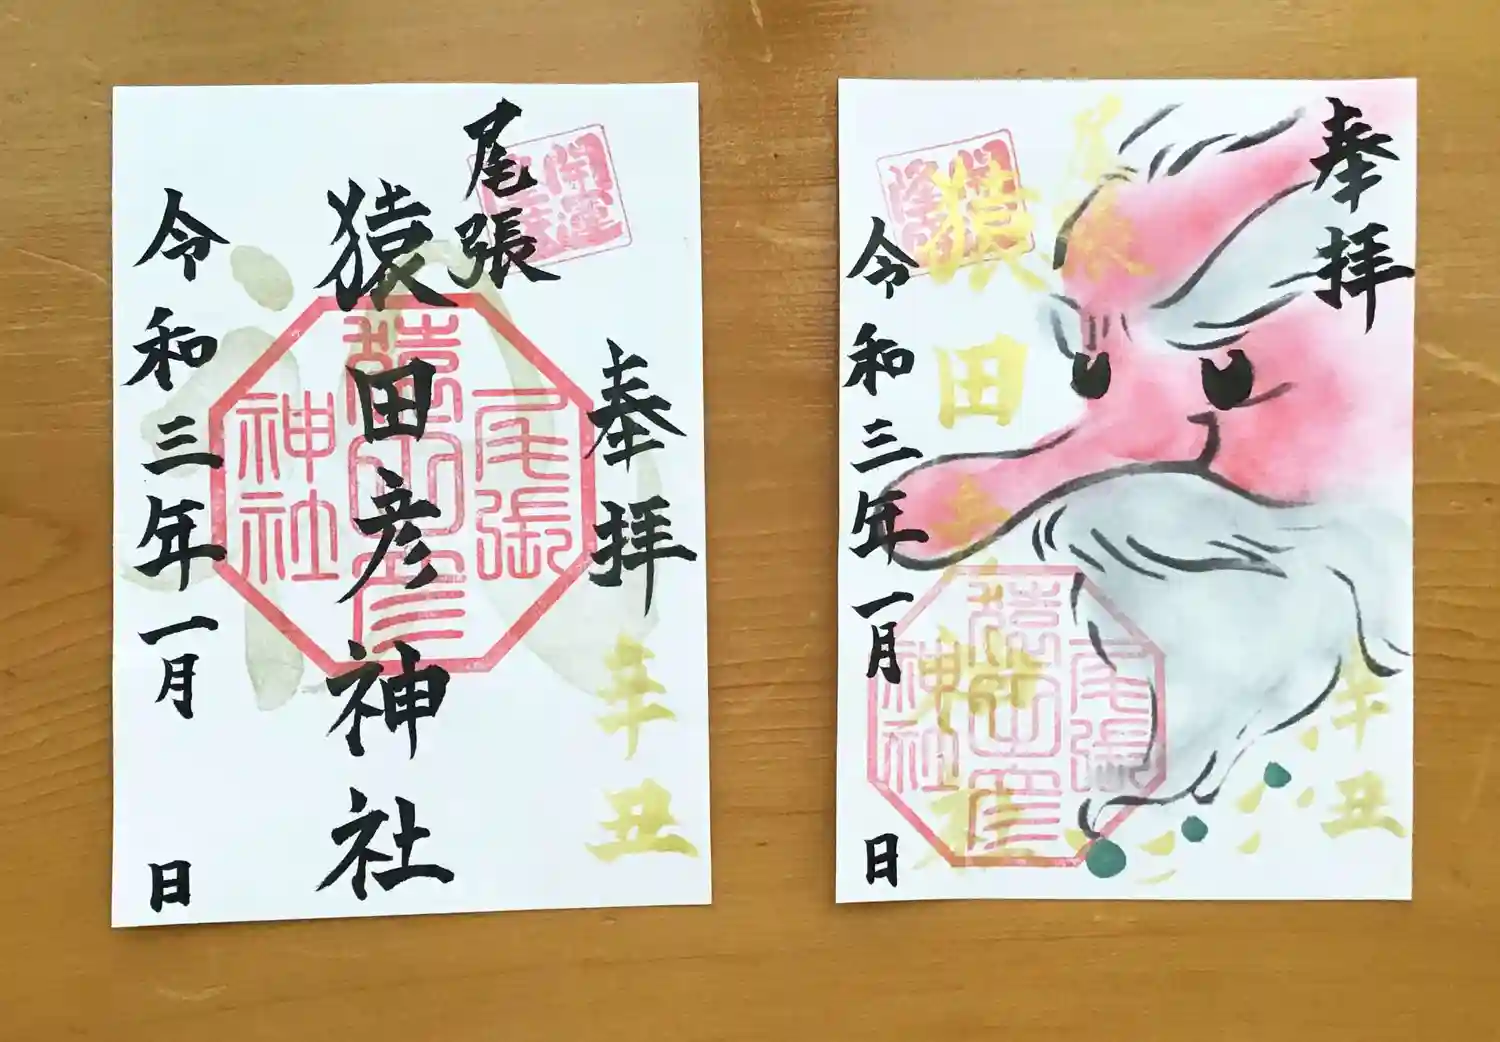 奉拝
辛丑
尾張
猿田彦神社
開運
尾張
猿田彦
神社
令和三年一月 日
奉拝
辛丑
尾張
猿田彦神社
尾張
猿田彦
神社
令和三年一月 日